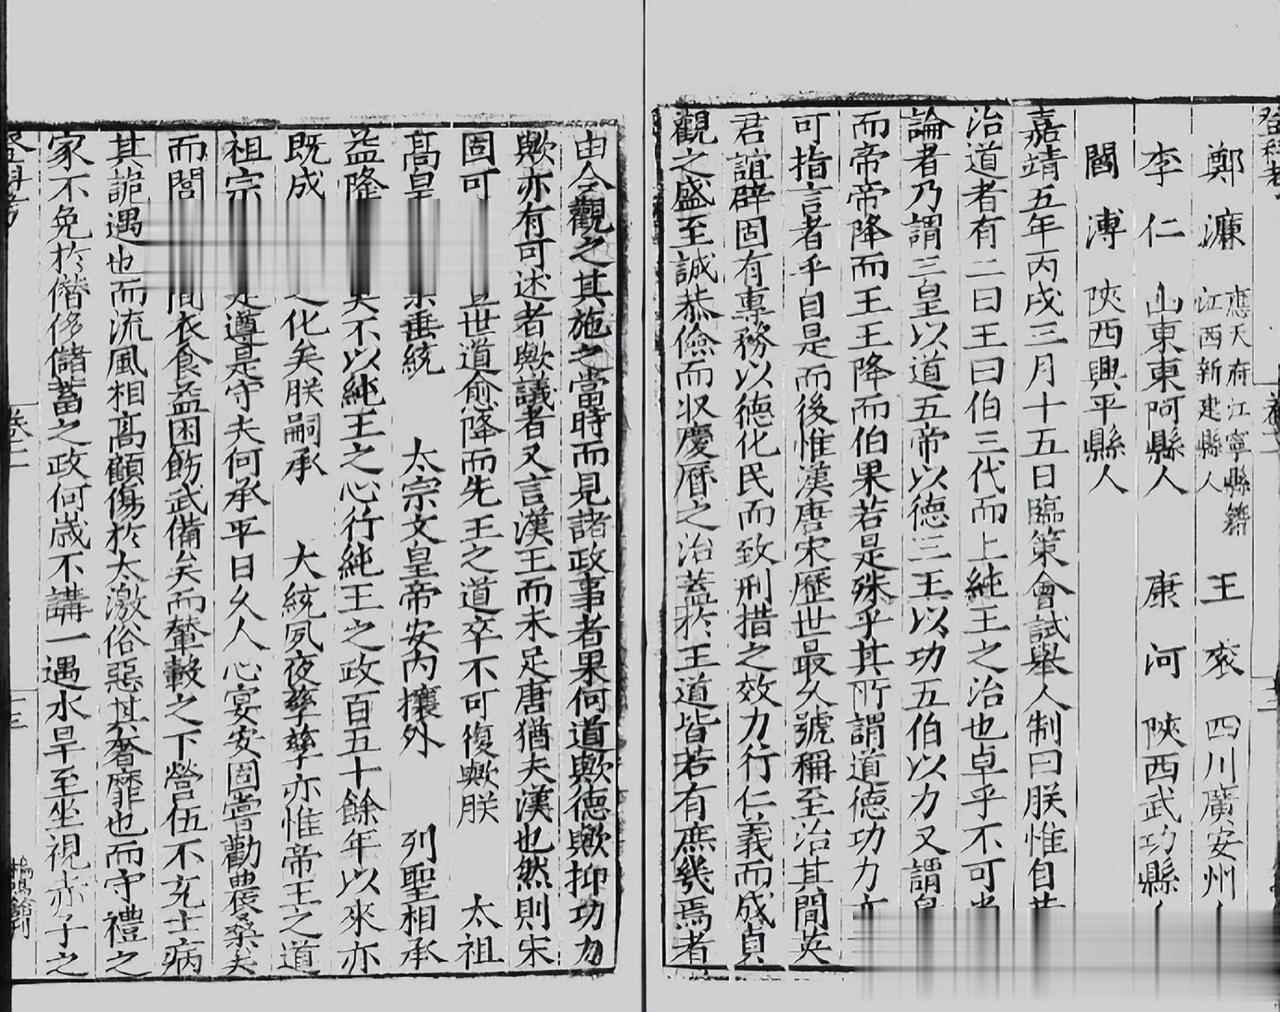 登科考
鄭濂 應天府江寧縣籍江西新建縣人 王袞 四川廣安州
李仁 山東東阿縣人 康河 陝西武功縣
閻溥 陝西興平縣人
嘉靖五年丙戌三月十五日臨策會試舉人制曰朕惟自昔
治道者有二曰王曰伯三代而上純王之治也卓乎不可尚
論者乃謂三皇以道五帝以德三王以功五伯以力又謂皇
而帝帝降而王王降而伯果若是殊乎其所謂道德功力
可指言者乎自是而後惟漢唐宋歷世最久號稱至治其間英
君誼辟固有專務以德化民而致刑措之效力行仁義而成貞
觀之盛至誠恭儉而収慶曆之治蓋於王道皆若有庶幾焉者
由今觀之其施之當時而見諸政事者果何道歟德歟抑功力
歟亦有可述者歟議者又言漢王而未足唐猶夫漢也然則宋
固可 世道愈降而先王之道卒不可復歟朕 太祖
高皇 垂統 太宗文皇帝安內攘外 列聖相承
益隆 矣不以純王之心行純王之政百五十餘年以來亦
既成 之化矣朕嗣承 大統夙夜孳孳亦惟帝王之道
祖宗 是遵是守夫何承平日久人心宴安固嘗勸農桑矣
而閭 間衣食益困飭武備矣而輦轂之下營伍不充士病
其詭遇也而流風相高顧傷於太激俗惡其奢靡也而守禮之
家不免於僭侈儲蓄之政何歲不講一遇水旱至坐視赤子之
登科考 卷二 十三